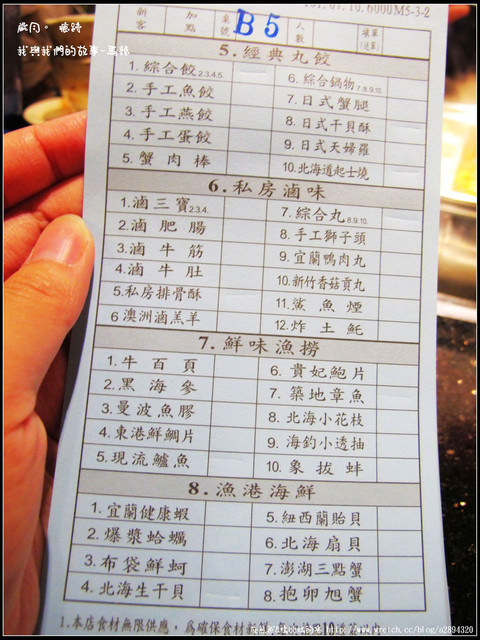 我與我們的故事-馬修
新客 加點 桌號 B5 人數
5.經典丸餃
1.綜合餃2.3.4.5.
2.手工魚餃
3.手工燕餃
4.手工蛋餃
5.蟹肉棒
6.綜合鍋物7.8.9.10.
7.日式蟹腿
8.日式干貝酥
9.日式天婦羅
10.北海道起士燒
6.私房滷味
1.滷三寶2.3.4.
2.滷肥腸
3.滷牛筋
4.滷牛肚
5.私房排骨酥
6澳洲滷羔羊
7.綜合丸8.9.10.
8.手工獅子頭
9.宜蘭鴨肉丸
10.新竹香菇貢丸
11.鯊魚煙
12.炸土魠
7.鮮味漁撈
1.牛百頁
2.黑海參
3.曼波魚膠
4.東港鮮鯛片
5.現流鱸魚
6.貴妃鮑片
7.築地章魚
8.北海小花枝
9.海釣小透抽
10.象拔蚌
8.漁港海鮮
1.宜蘭健康蝦
2.爆漿蛤蠣
3.布袋鮮蚵
4.北海生干貝
5.紐西蘭貽貝
6.北海扇貝
7.澎湖三點蟹
8.抱卵旭蟹
1.本店食材無限供應，為確保食材
http://www.wretch.cc/blog/a2894320